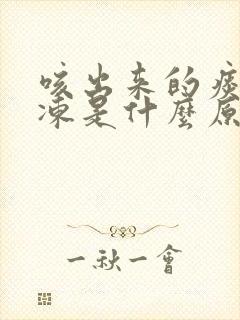 咳出来的痰
凍是什麼原
一秋一會